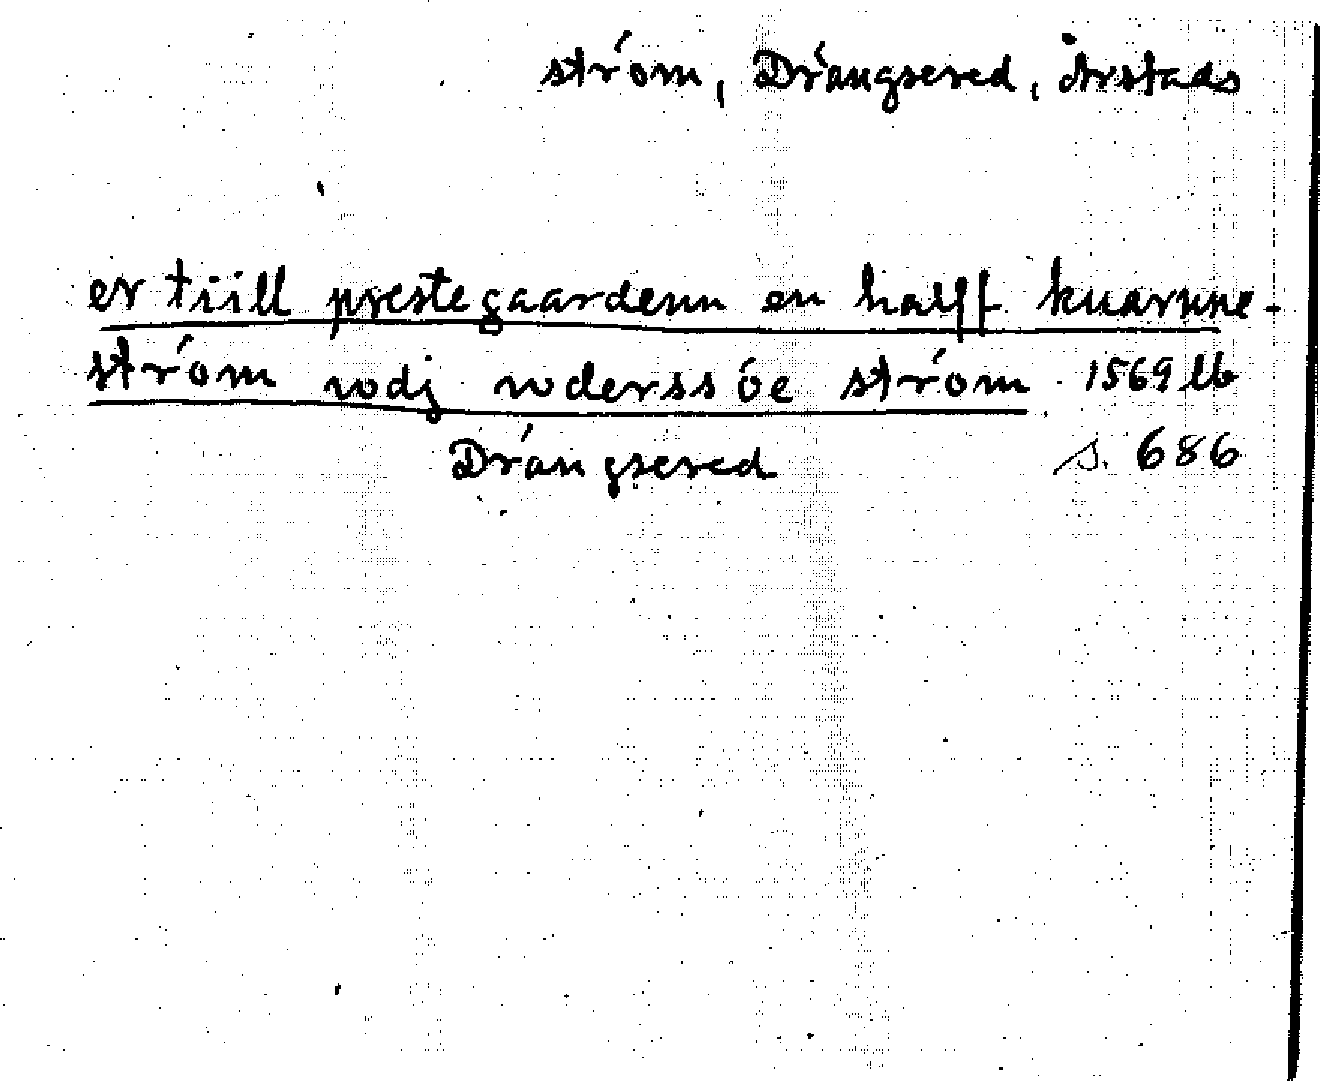 ström, Drängsered, Årstads
er tiill prestegaardenn en halff kuarnne-
ström wdj wderssöe ström 1569 lb
Drängsered s. 686